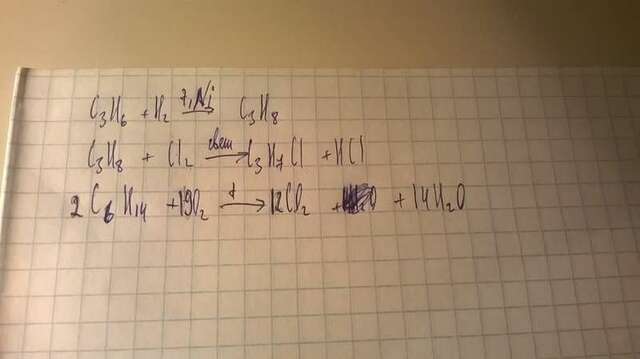 C₃H₆ + H₂ t, Ni → C₃H₈
C₃H₈ + Cl₂ свет → C₃H₇Cl + HCl
2C₆H₁₄ + 19O₂ t → 12CO₂ + 14H₂O